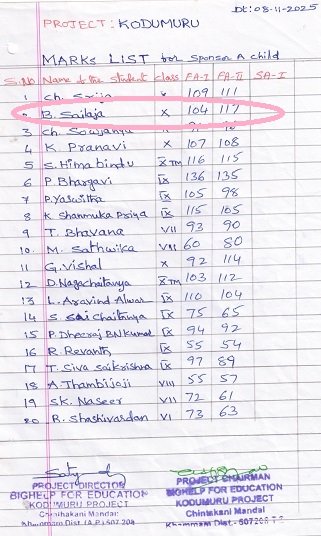 Dt: 08-11-2025
PROJECT: KODUMURU
MARKS LIST for Sponsor A child
S.No Name of the student class FA-I FA-II SA-I
1 Ch. X 109 111
2 B. Sailaja X 104 117
3 Ch. Sowjanya X
4 K. Pranavi X 107 108
5 S. Himabindu X TM 116 115
6 P. Bhargavi IX 136 135
7 P. Yaswitha IX 105 98
8 K Shanmuka Priya IX 115 105
9 T. Bhavana VII 93 90
10. M. Sathwika VII 60 80
11 G. Vishal X 92 114
12 D. Nagachaitanya X TM 103 112
13 L. Aravind Alwar IX 110 104
14 S. Sai Chaitanya IX 75 65
15 P. Dheeraj B.N kumar IX 94 92
16 R. Revanth IX 55 54
17 T. Siva Saikrishna IX 97 89
18 A. Thambijoji VIII 55 57
19 SK. Naseer VII 72 61
20 R. Shashivardan VI 73 63
PROJECT DIRECTOR
BIGHELP FOR EDUCATION
KODUMURU PROJECT
Chinthakani Mandal
Khammam Dist. (A.P.) 507 208
PROJECT CHAIRMAN
BIGHELP FOR EDUCATION
KODUMURU PROJECT
Chintakani Mandal
Khammam Dist.- 507208